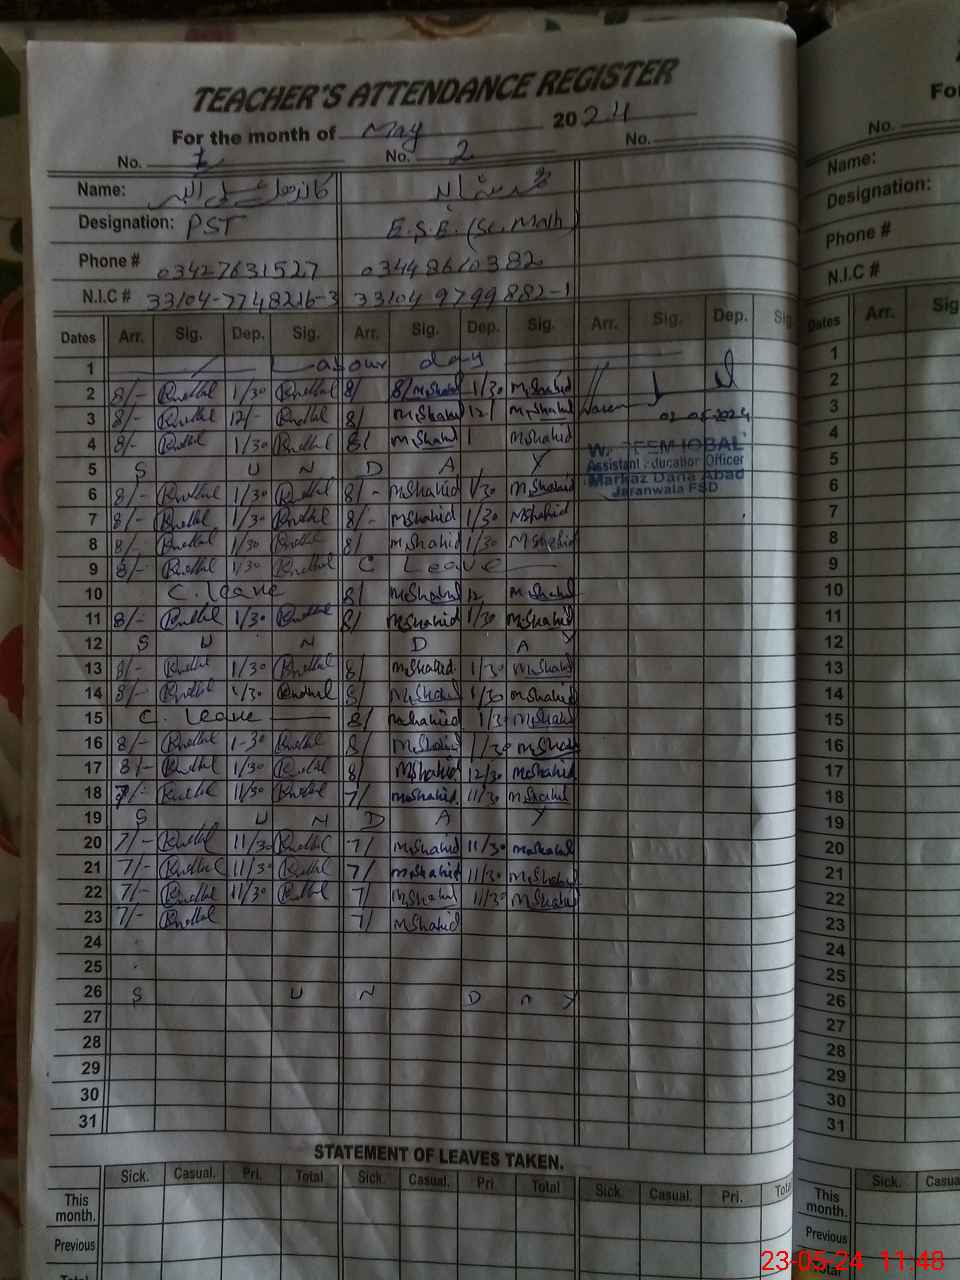 TEACHER'S ATTENDANCE REGISTER
For the month of May 2024
No. 1 No. 2 No.
Name:
Designation: PST E.S.E. (Sc. Math)
Phone # 03427631527 03448610382
N.I.C # 33104-7748216-3 33104 9799882-1
Dates Arr. Sig. Dep. Sig. Arr. Sig. Dep. Sig. Arr. Sig. Dep. Sig
1 Labour day
2 8/- 1/30 8/ 8/ M.Shahid 1/30 M.Shahid
3 8/- 12/- 8/ M.Shahid 12/ M.Shahid
4 8/- 1/30 8/ M.Shahid 1 M.Shahid
5 S U N D A Y
6 8/- 1/30 8/- M.Shahid 1/30 M.Shahid
7 8/- 1/30 8/- M.Shahid 1/30 M.Shahid
8 8/- 1/30 8/ M.Shahid 1/30 M.Shahid
9 8/- 1/30 C Leave
10 C. leave 8/ M.Shahid 12 M.Shahid
11 8/- 1/30 8/ M.Shahid 1/30 M.Shahid
12 S U N D A Y
13 8/- 1/30 8/ M.Shahid 1/30 M.Shahid
14 8/- 1/30 8/ M.Shahid 1/30 M.Shahid
15 C. Leave 8/ M.Shahid 1/30 M.Shahid
16 8/- 1-30 8/ M.Shahid 1/30 M.Shahid
17 8/- 1/30 8/ M.Shahid 12/30 M.Shahid
18 7/- 11/30 7/ M.Shahid 11/30 M.Shahid
19 S U N D A Y
20 7/- 11/30 7/ M.Shahid 11/30 M.Shahid
21 7/- 11/30 7/ M.Shahid 11/30 M.Shahid
22 7/- 11/30 7/ M.Shahid 11/30 M.Shahid
23 7/- 7/ M.Shahid
24
25
26 S U N D A Y
27
28
29
30
31
WASEEM IQBAL
Assistant Education Officer
Markaz Dana Abad
Jaranwala FSD
STATEMENT OF LEAVES TAKEN.
Sick. Casual. Pri. Total Sick. Casual. Pri. Total Sick. Casual. Pri. Total
This month.
Previous
Total
Fo
No.
Name:
Designation:
Phone #
N.I.C #
Dates Arr. Sig
1
2
3
4
5
6
7
8
9
10
11
12
13
14
15
16
17
18
19
20
21
22
23
24
25
26
27
28
29
30
31
Sick. Casua
This month.
Previous
Total
23-05-24 11:48